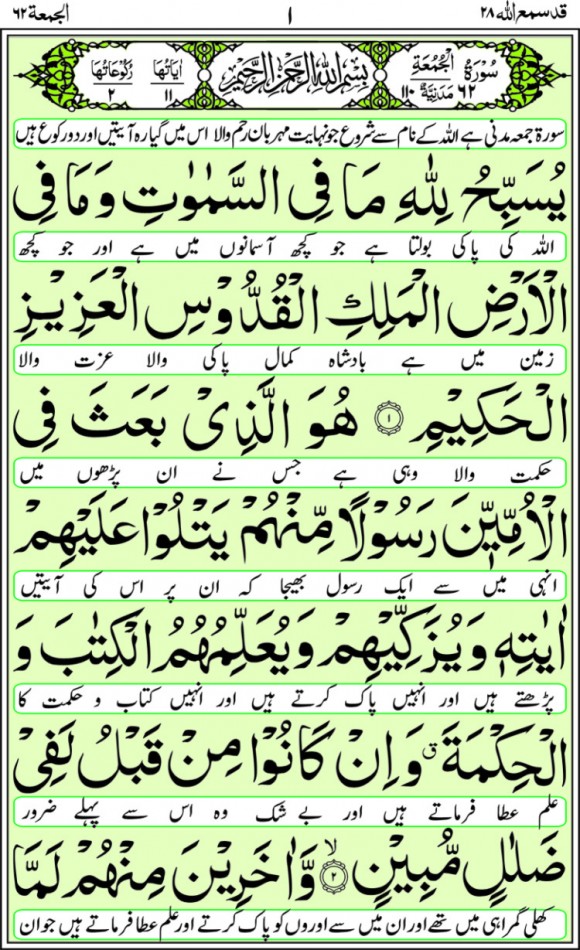 قد سمع اللّٰه ٢٨
١
الجمعة ٦٢
سُوْرَةُ الْجُمُعَةِ مَدَنِيَّةٌ ٦٢ ١١٠
بِسْمِ اللّٰهِ الرَّحْمٰنِ الرَّحِيْمِ
اٰيَاتُهَا ١١
رُكُوْعَاتُهَا ٢
سورۃ جمعہ مدنی ہے اللہ کے نام سے شروع جو نہایت مہربان رحم والا اس میں گیارہ آیتیں اور دو رکوع ہیں
يُسَبِّحُ لِلّٰهِ مَا فِي السَّمٰوٰتِ وَمَا فِي
اللہ کی پاکی بولتا ہے جو کچھ آسمانوں میں ہے اور جو کچھ
الْاَرْضِ الْمَلِكِ الْقُدُّوْسِ الْعَزِيْزِ
زمین میں ہے بادشاہ کمال پاکی والا عزت والا
الْحَكِيْمِ ۝١ هُوَ الَّذِيْ بَعَثَ فِي
حکمت والا وہی ہے جس نے ان پڑھوں میں
الْاُمِّيّٖنَ رَسُوْلًا مِّنْهُمْ يَتْلُوْا عَلَيْهِمْ
انہی میں سے ایک رسول بھیجا کہ ان پر اس کی آیتیں
اٰيٰتِهٖ وَيُزَكِّيْهِمْ وَيُعَلِّمُهُمُ الْكِتٰبَ وَ
پڑھتے ہیں اور انہیں پاک کرتے ہیں اور انہیں کتاب و حکمت کا
الْحِكْمَةَ ق وَاِنْ كَانُوْا مِنْ قَبْلُ لَفِيْ
علم عطا فرماتے ہیں اور بے شک وہ اس سے پہلے ضرور
ضَلٰلٍ مُّبِيْنٍ ۝٢ لا وَّاٰخَرِيْنَ مِنْهُمْ لَمَّا
کھلی گمراہی میں تھے اور ان میں سے اوروں کو پاک کرتے اور علم عطا فرماتے ہیں جو ان